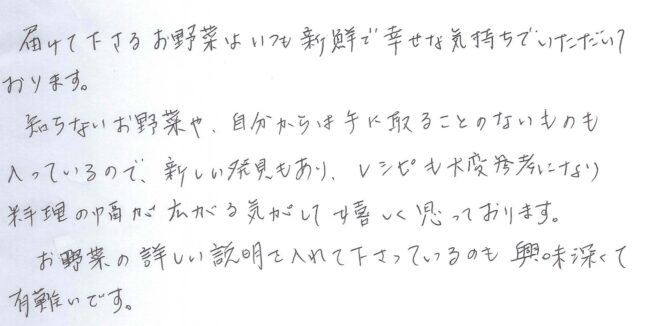 届けて下さるお野菜はいつも新鮮で幸せな気持ちでいただいて
おります。
知らないお野菜や、自分からは手に取ることのないものも
入っているので、新しい発見もあり、レシピも大変参考になり
料理の幅が広がる気がして嬉しく思っております。
お野菜の詳しい説明を入れて下さっているのも興味深くて
有難いです。